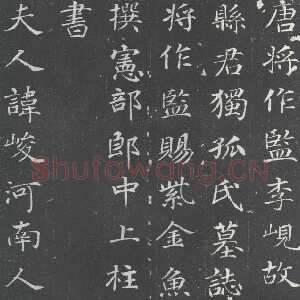 唐將作監李峴故
縣君獨孤氏墓誌
將作監賜紫金魚
撰憲部郎中上柱
書
夫人諱峻河南人
Shufawang.CN